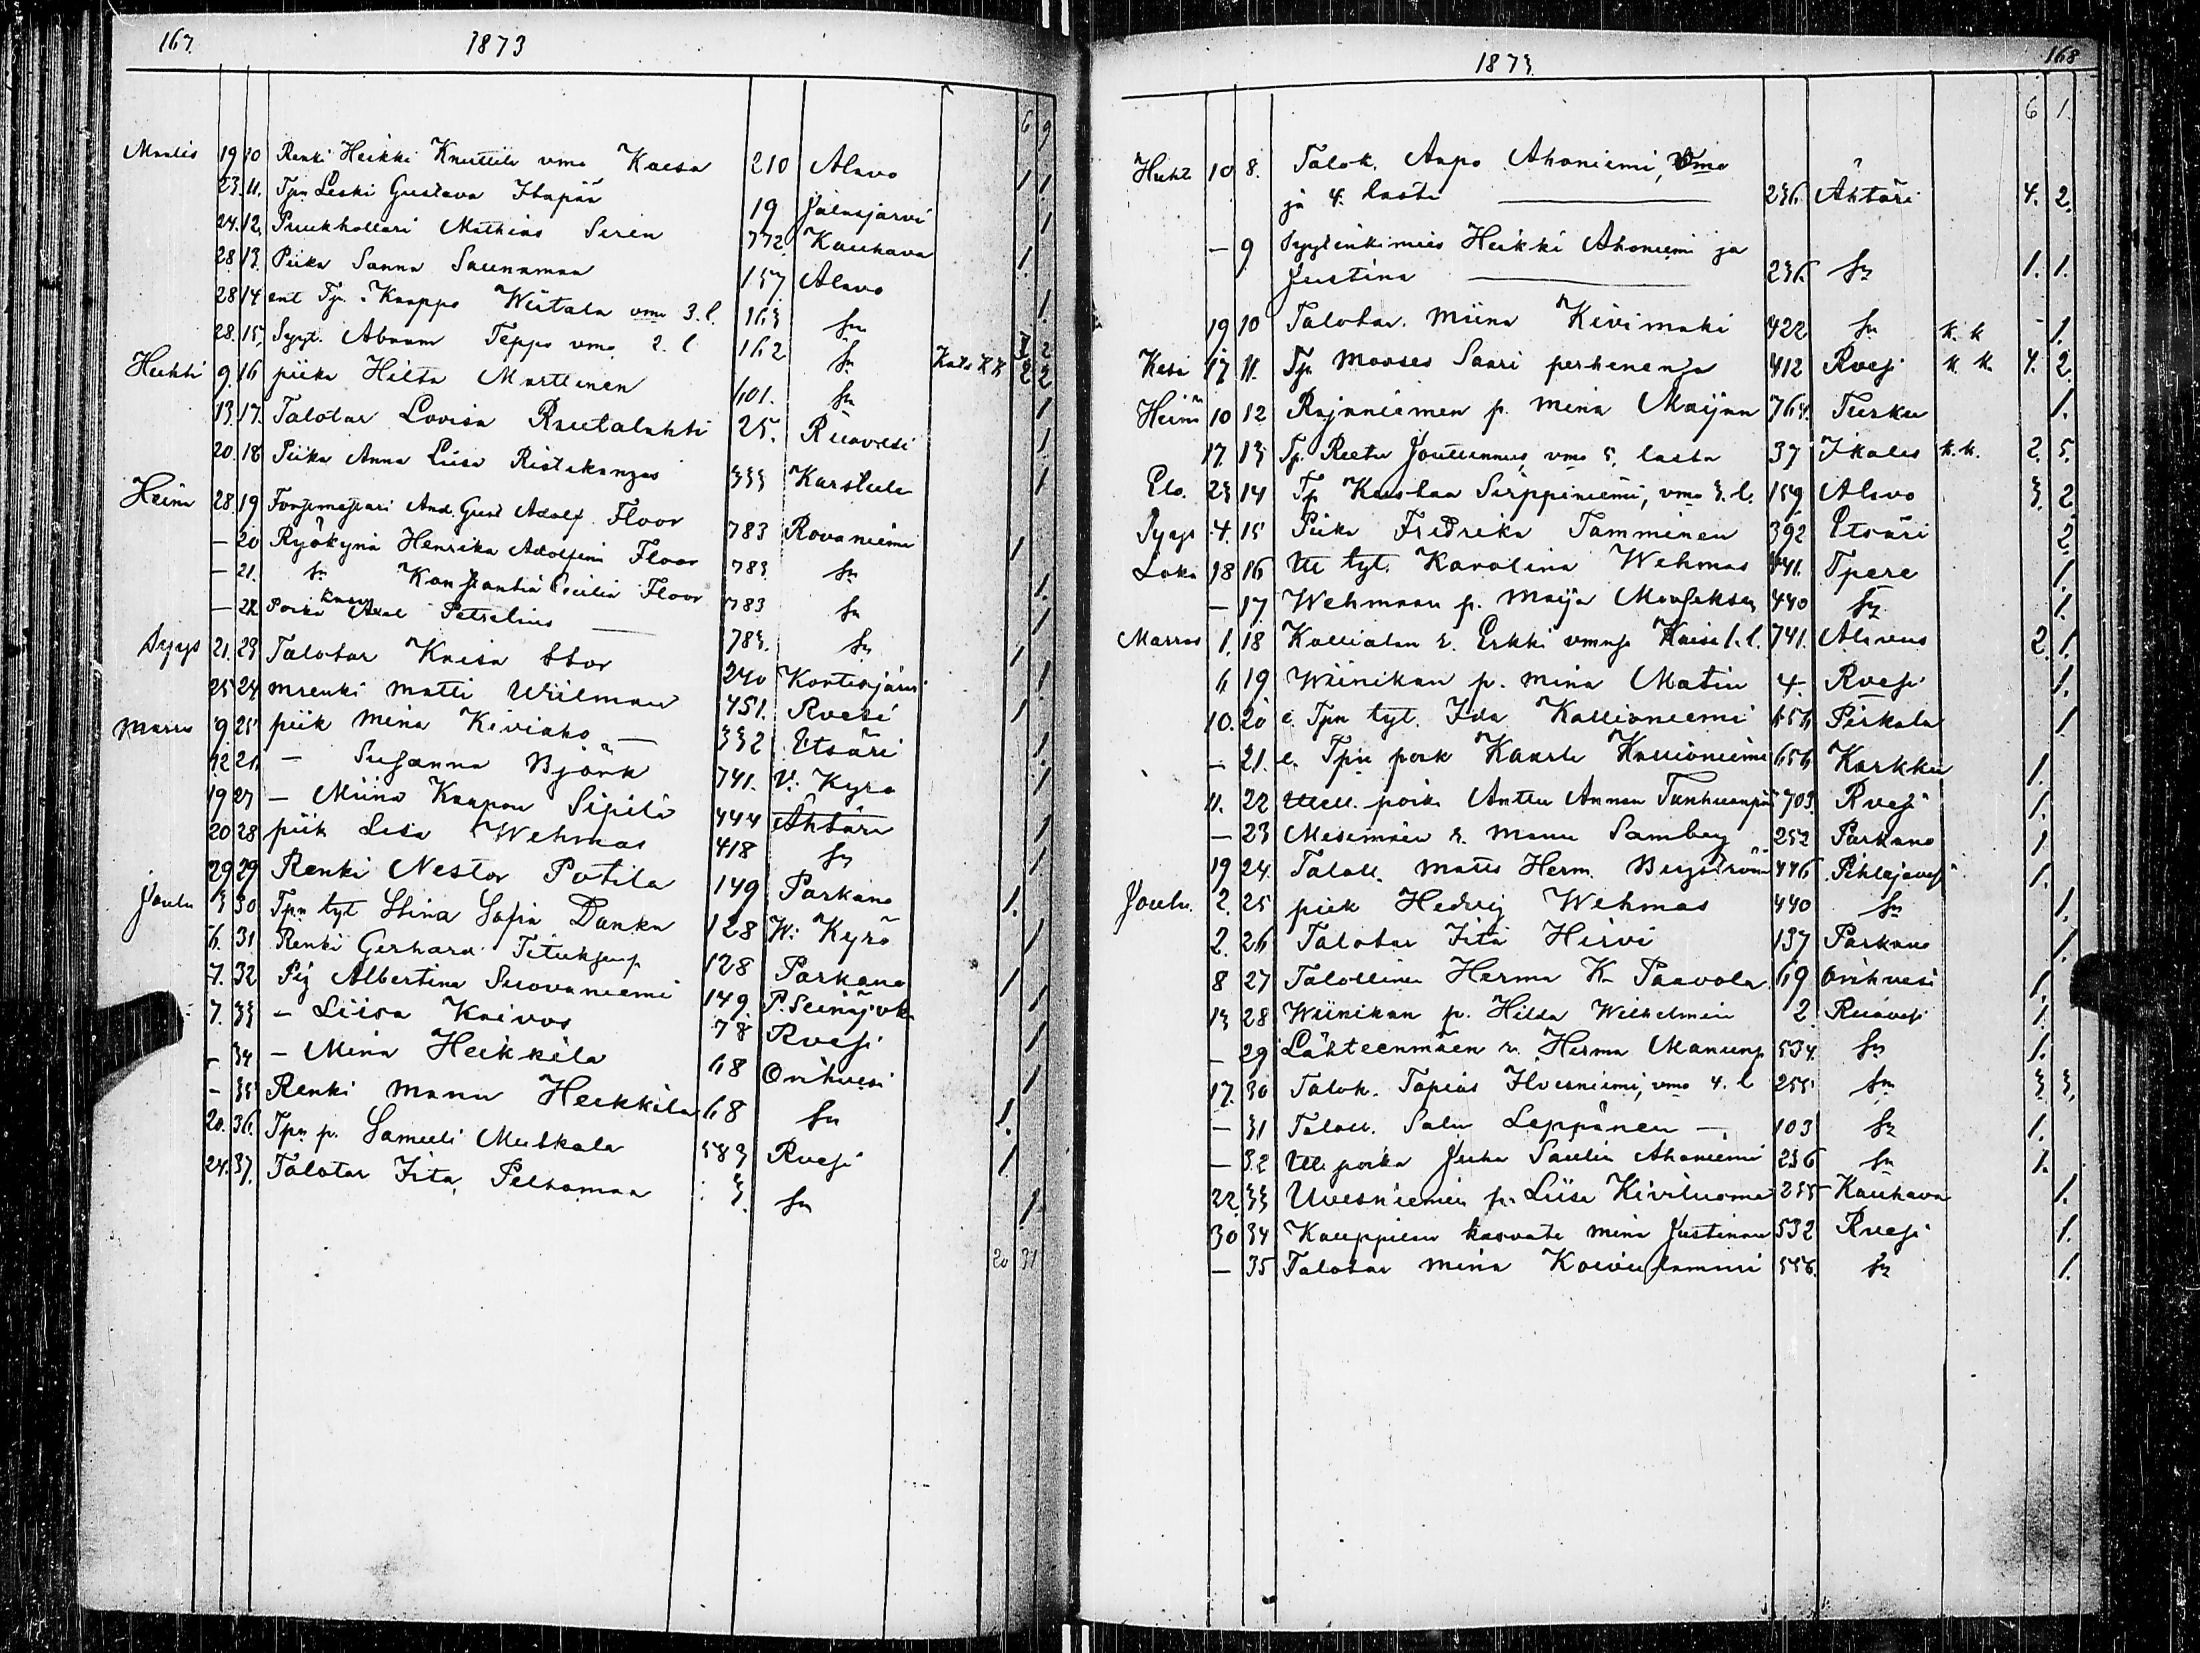 167. 1873
6 9
Maalis 19 10 Renki Heikki Knuttila vmo Kaesa 210 Alavo 1 1
23. 11. Tpn Leski Gustava Ilapää 19 Jalasjärvi 1
24. 12. Puukhollari Mathias Seren 772 Kauhava 1.
28. 13. Piika Sanna Saunamaa 157 Alavo 1.
28 14 ent Tp. Kaappo Wiitala vmo 3. l. 163 sn 2
28. 15. Syyt. Abram Teppo vmo 2. l 162 sn 2 2
Huhti 9. 16 piika Hilda Marttinen 101. sn 1
13. 17. Talotar Lovisa Rautalahti 25. Ruovesi 1.
20. 18 Piika Anna Liisa Ristikangas 333 Karstula 1
Heinä 28. 19 And. Gust Adolf Floor 783 Rovaniemi 1
— 20 Ryökynä Henrika Adolfina Floor 783 sn 1.
— 21. sn Konstantia Cecilia Floor 783 sn 1
— 22 Poika Axel Petrelius — 783. sn 1
Syys 21. 23 Talotar Kaisa Stor 240 Kortesjärvi 1
25 24 mrenki Matti Wiilman 451. Rvesi 1
Marras 9 25 piik Mina Kiviaho — 332 Etsäri 1.
12 26 — Susanna Björk 741. V: Kyrö 1
19 27 — Miina Kaapon Sipilä 444 Ähtäri 1
20 28 piik Lisa Wehmas 418 sn 1
29 29 Renki Nestor Potila 149 Parkano 1.
Joulu 3 30 Tpn tyt Stina Sofia Danka 128 W: Kyrö 1
6. 31 Renki Gerhard 128 Parkano 1
7. 32 Pig Albertina Suovaniemi 149. P. Seinäjok 1
7. 33 — Liisa Kaivos 78 Rvesi 1
— 34 — Mina Heikkilä 68 Orihvesi 1
— 35 Renki Manu Heikkilä 68 sn 1.
20. 36. Tpn p. Samuli Mutkala 583 Rvesi 1
24. 37. Talotar Fita Peltomaa 3. sn 1.
20 31
1873. 168
6 1.
Huht 10 8. Talok. Aapo Ahoniemi, Vmo
ja 4. lasta — 236. Ähtäri 4. 2.
— 9 Syytinkimies Heikki Ahoniemi ja
Justina — 236. sn 1. 1.
19 10 Talotar. Miina Kivimäki 422 sn k. k 1.
Kesä 17 11. Tp. Mooses Saari perhenensa 412 Rvesi k. k. 4. 2.
Heinä 10 12 Rajaniemen p. Mina Maijan 764. Turku 1.
17. 13 Tp. Reetu vmo 5. lasta 37 Ikalis k.k. 2. 5.
Elo. 23 14 Tp Kustaa Sirppiniemi, vmo 3. l. 159 Alavo 3. 2
Syys 4. 15 Piika Fredrika Tamminen 392 Etsäri 2.
Loka 18 16 Itt tyt. Karolina Wehmas 441. Tpere 1.
— 17 Wehmaan p. Maija 440 sn 1.
Marras 1. 18 Kallialan r. Erkki vmnsa Kaisa 1. l. 741. Alavus 2. 1.
6 19 Wiinikan p. Mina Matin 4. Rvesi 1.
10. 20 e. Tpn tyt. Ida Kallioniemi 656 Pirkala 1
— 21. e. Tpn poik Kaarle Kallioniemi 656 Karkku 1.
11. 22 poik. Anttu Annan 703. Rvesi 1.
— 23 Mesimäen r. Manu Samberg 252 Parkano 1
19 24. Taloll. Matts Herm. Bergström 446 Pihlajavesi 1.
Joulu. 2. 25 piik Hedvig Wehmas 440 sn 1.
2. 26 Talotar Fita Hirvi 137 Parkano 1.
8 27 Talollinen Herma K. Paavola 69 Orihvesi 1.
13 28 Wiinikan p. Hilda Wilhelmiina 2 Ruovesi 1.
— 29 Lähteenmäen r. Herma Manunp. 534. sn 1.
17. 30 Talok. Topias Ilvesniemi, vmo 4. l 255 sn 3. 3.
— 31 Taloll. Salu Leppänen —. 103 sn 1.
— 32 Itt. poika Juha Saulin Ahoniemi 236 sn 1.
22. 33 Uvesniemen p. Liisa Kiviluoma 255 Kauhava 1.
30 34 Kauppilan kasvate Mina Justinan 532 Rvesi 1.
— 35 Talotar Mina Koivulammi 556. sn 1.